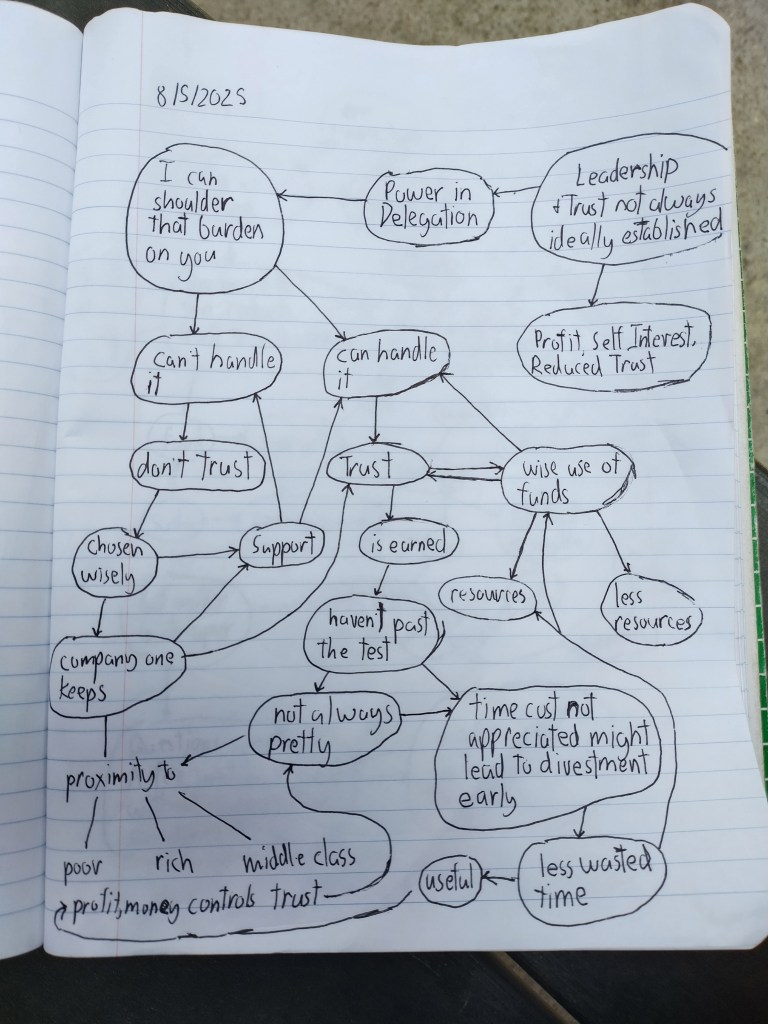 8/5/2025
I can
shoulder
that burden
on you
Power in
Delegation
Leadership
+ Trust not always
ideally established
Profit, Self Interest,
Reduced Trust
can't handle
it
can handle
it
don't trust
Trust
wise use of
funds
chosen
wisely
support
is earned
resources
less
resources
haven't past
the test
company one
keeps
not always
pretty
time cost not
appreciated might
lead to divestment
early
proximity to
poor
rich
middle class
less wasted
time
useful
profit, money controls trust